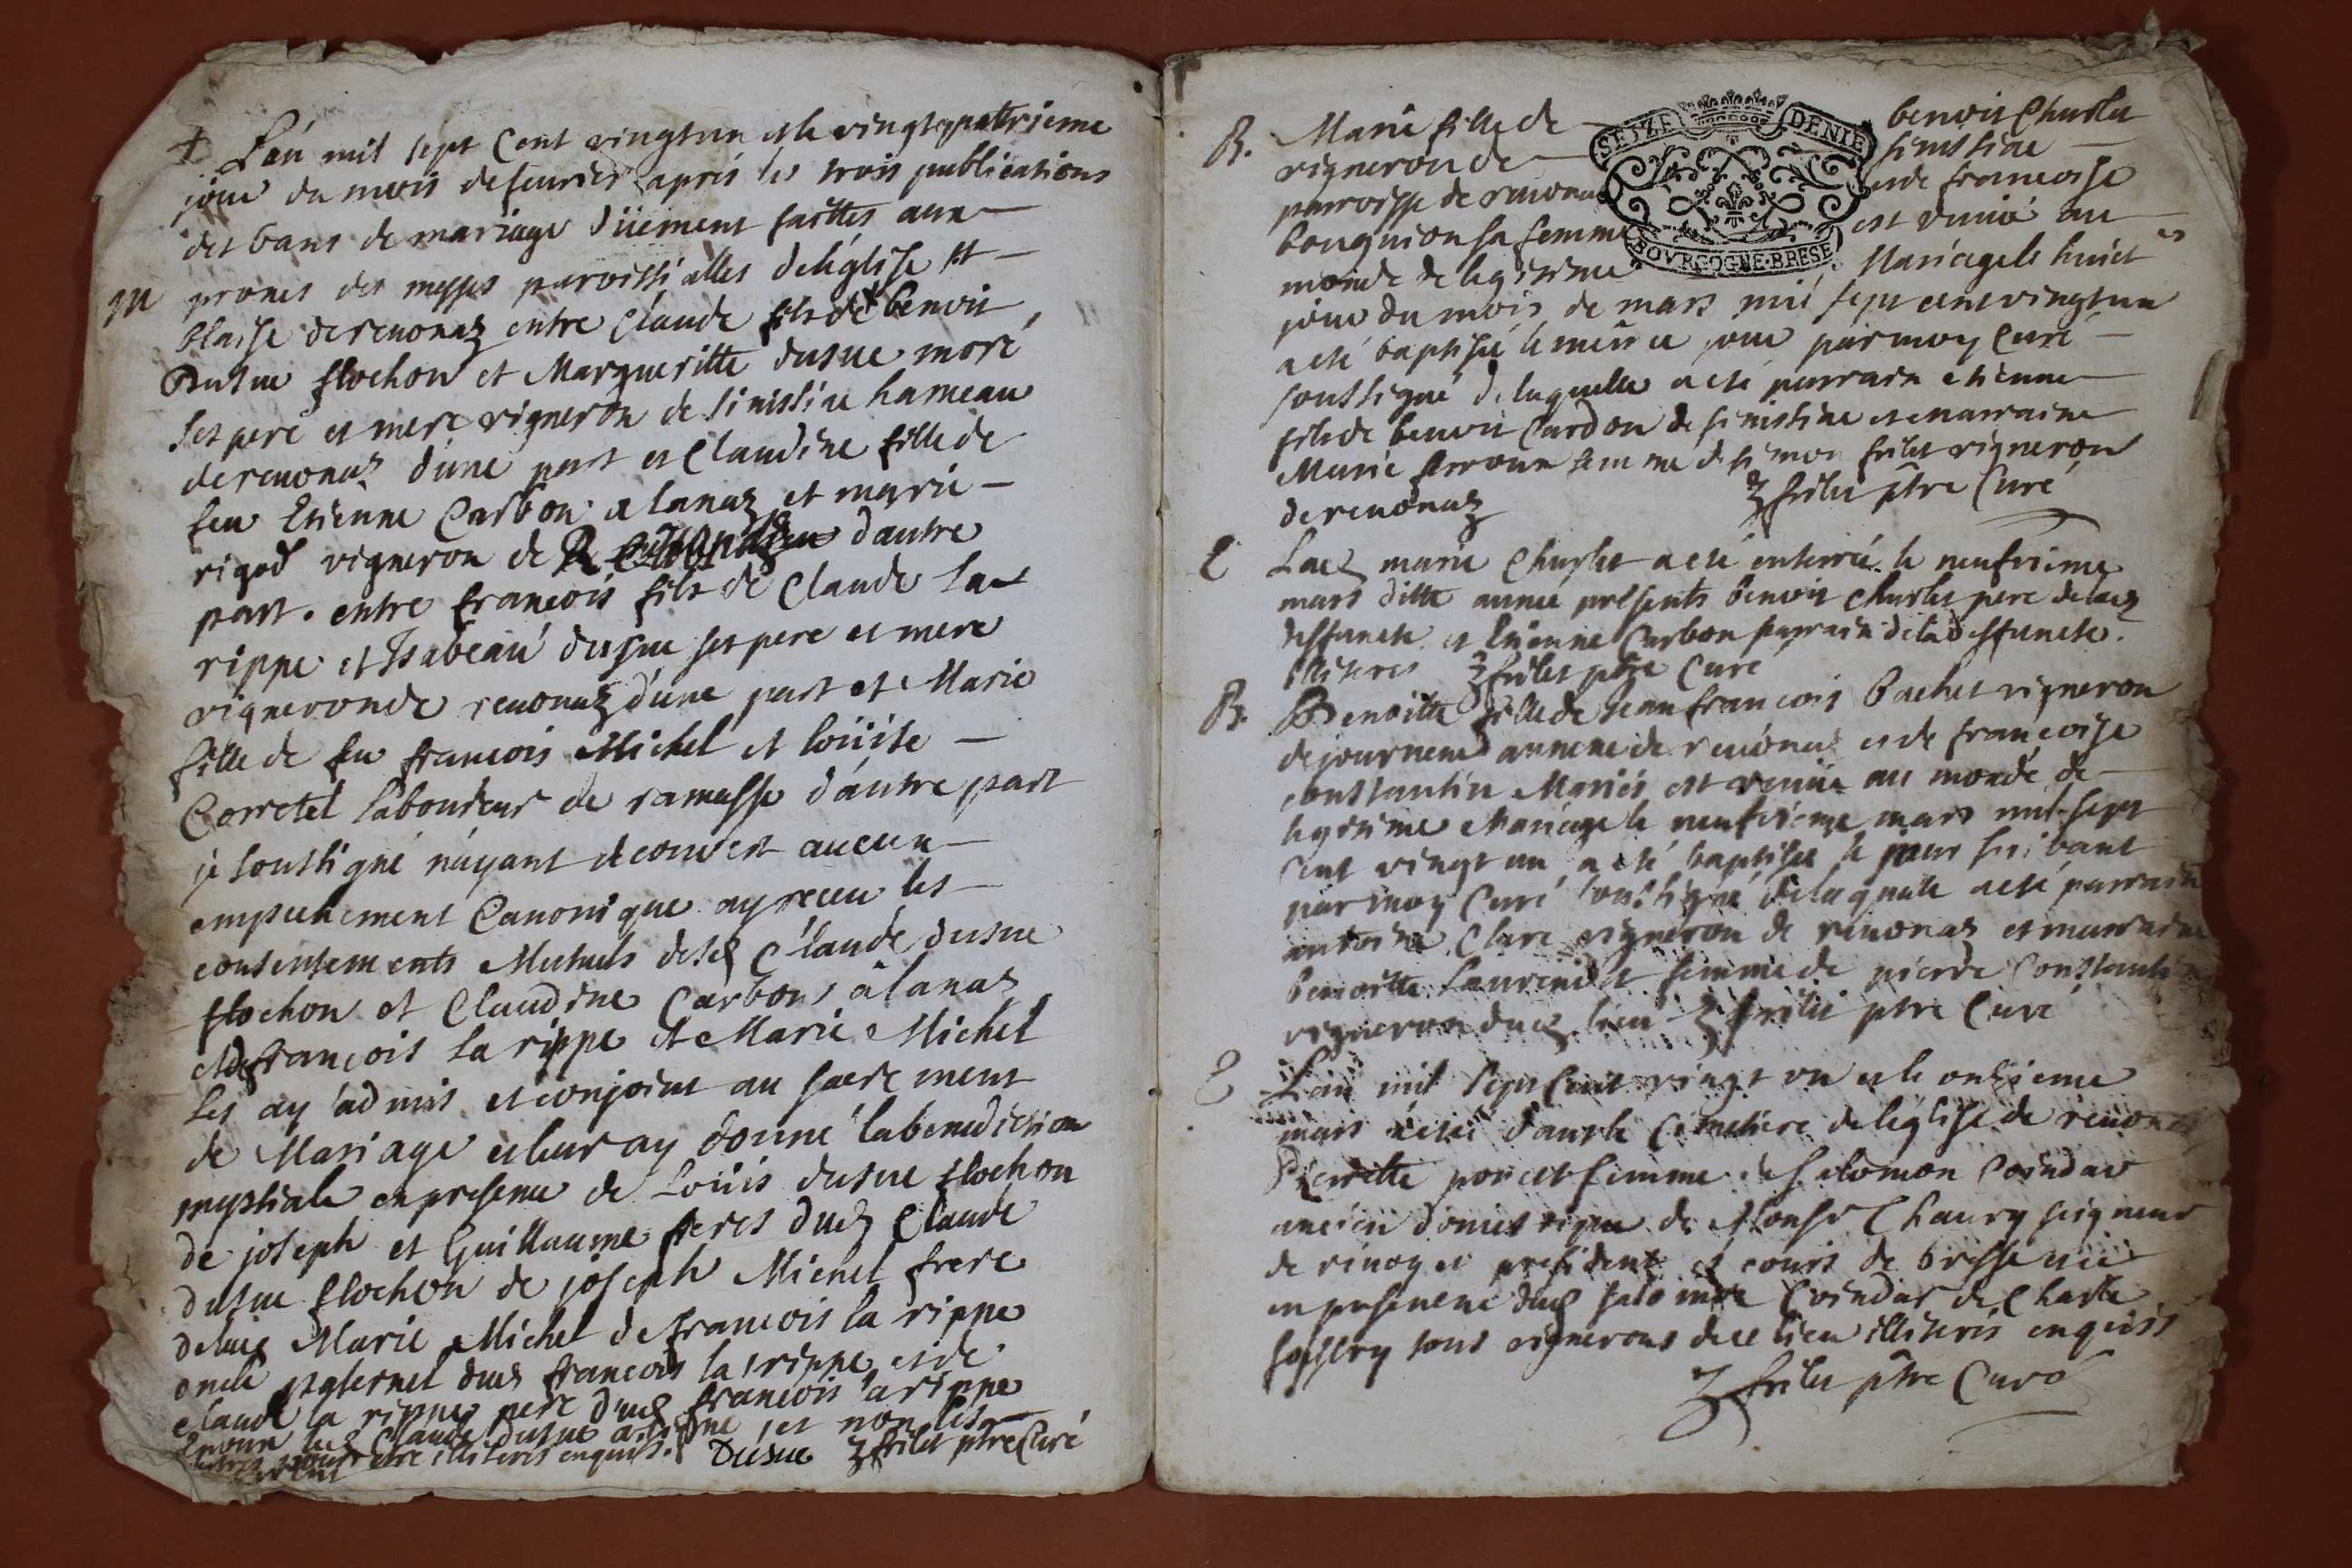 L'an mil sept Cent vingtun et le vingtquatrieme
jour du mois de feurier apres les trois publications
des bans de mariage düement faittes aux
M prones des messes paroissialles de l'eglise st
blaise de reuonaz entre Claude fils de benoit
Dusue flochon et Margueritte dusue moré
ses pere et mere vigneron de sinissiae hameau
de reuonaz d'une part et Claudine fille de
feu Etienne Carbon alanaz et marie
rigod vigneron de d'autre
part. entre francois fils de Claude la
rippe et Isabeau dusue ses pere et mere
vigneron de reuonaz d'une part et Marie
fille de feu francois Michel et loüise
Corretel laboureur de ramasse d'autre part
je soussigné n'ayant decouvert aucun
empechement Canonique ay receu les
consentements Mutuels desd Claude dusue
flochon et Claudine Carbon alanaz
et de francois la rippe et Marie Michel
les ay admis et conjoint au sacrement
de Mariage et leur ay donné la benediction
nuptiale en presence de Loüis dusue flochon
de joseph et Guillaume freres dud Claude
dusue flochon de joseph Michel frere
de lad Marie Michel de francois la rippe
oncle paternel dud francois la rippe et de
Claude la rippe pere dud francois la rippe
led Claude dusue a signé et non les
autres pour etre illiteres enquis. Dusue frilet ptre Curé
B. Marie fille de benoit Charlet
vigneron de sinissiae
parroisse de reuonaz et de francoise
bouquion sa femme est venüe au
monde de legitime Mariage le huict
jour du mois de mars mil sept cent vingtun
a eté baptisée le même jour par moy Curé
soussigné de laquelle a eté parrain etienne
fils de benoit Cardon de sinissiae et marraine
Marie femme de simon frilet vigneron
de reuonaz frilet ptre Curé
E Lad marie Charlet a eté enterrée le neufvieme
mars ditte année présents benoit Charlet pere de lad
deffuncte et Etienne Carbon parrain de la deffuncte.
illiteres frilet ptre Curé
B. Benoitte fille de Jean francois bachet vigneron
de journans annexe de reuonaz et de francoise
constantin Mariés est venüe au monde de
legitime Mariage le neufvieme mars mil sept
cent vingt un a eté baptisée le jour suivant
par moy Curé soussigné de laquelle a eté parrain
antoine Clare vigneron de reuonaz et marraine
benoitte Laurendet femme de pierre Constantin
vigneron dud lieu frilet ptre Curé
E L'an mil sept Cent vingt un et le onzieme
mars dans le Cimetiere de l'eglise de reuonaz
Pierrette poncet femme de Salomon Coindar
ancien domestique de Monsr Chaury seigneur
de et president et cours de bresse
en presence dud salomon Coindar de Charle
tous vignerons de ce lieu illiteres enquis
frilet ptre Curé
SEIZE DENIE
BOVRGOGNE·BRESE